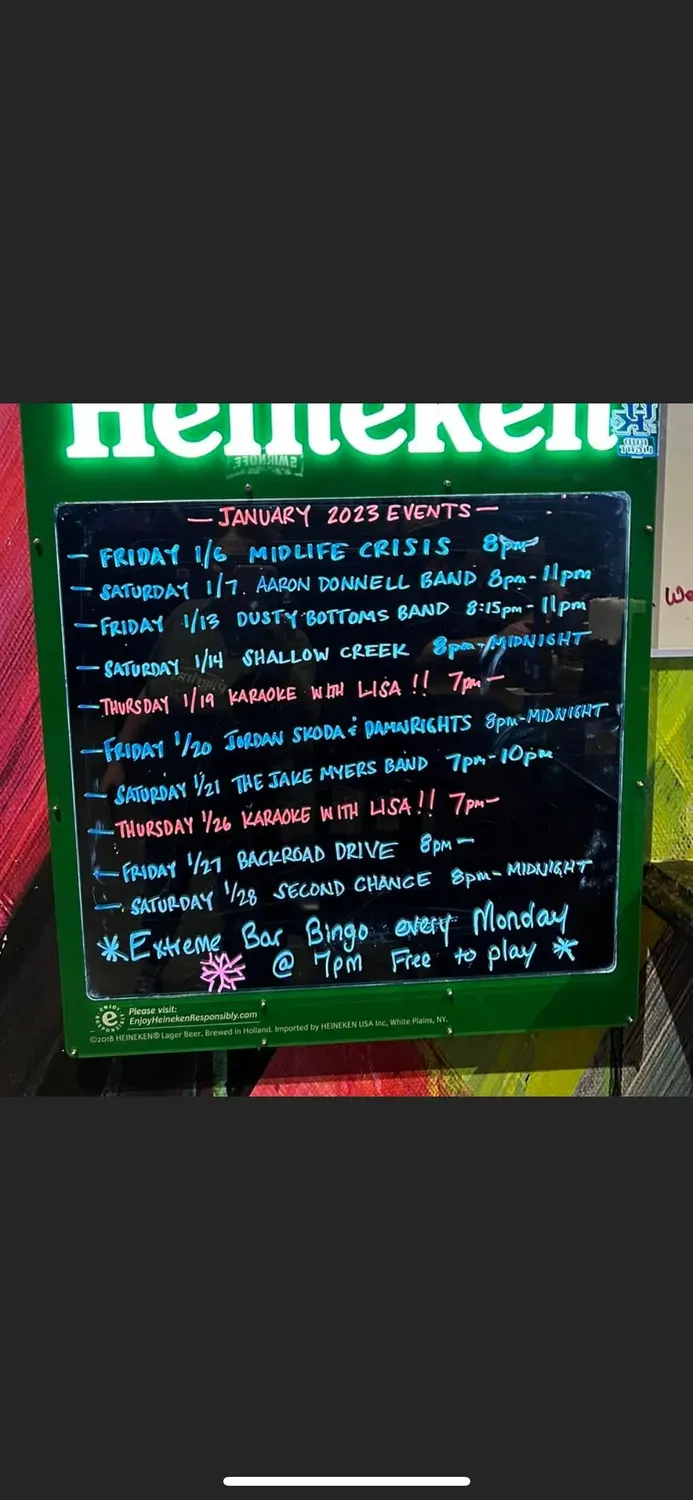 Heineken
SMIRNOFF
UK
BUD
LIGHT
— JANUARY 2023 EVENTS —
— FRIDAY 1/6 MIDLIFE CRISIS 8pm
— SATURDAY 1/7. AARON DONNELL BAND 8pm-11pm
— FRIDAY 1/13 DUSTY BOTTOMS BAND 8:15pm-11pm
— SATURDAY 1/14 SHALLOW CREEK 8pm-MIDNIGHT
— THURSDAY 1/19 KARAOKE WITH LISA !! 7pm—
— FRIDAY 1/20 JORDAN SKODA & DAMNRIGHTS 8pm-MIDNIGHT
— SATURDAY 1/21 THE JAKE MYERS BAND 7pm-10pm
— THURSDAY 1/26 KARAOKE WITH LISA!! 7pm—
— FRIDAY 1/27 BACKROAD DRIVE 8pm—
— SATURDAY 1/28 SECOND CHANCE 8pm-MIDNIGHT
* Extreme Bar Bingo every Monday
@ 7pm Free to play *
Please visit:
EnjoyHeinekenResponsibly.com
©2018 HEINEKEN® Lager Beer. Brewed in Holland. Imported by HEINEKEN USA Inc, White Plains, NY.